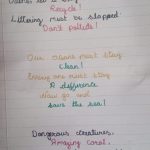 Recycle!
Littering must be stopped
Don't pollute!
Our oceans must stay
Clean!
Everyone must stay
A difference
Now go and
save the sea!
Dangerous creatures,
Amazing coral,